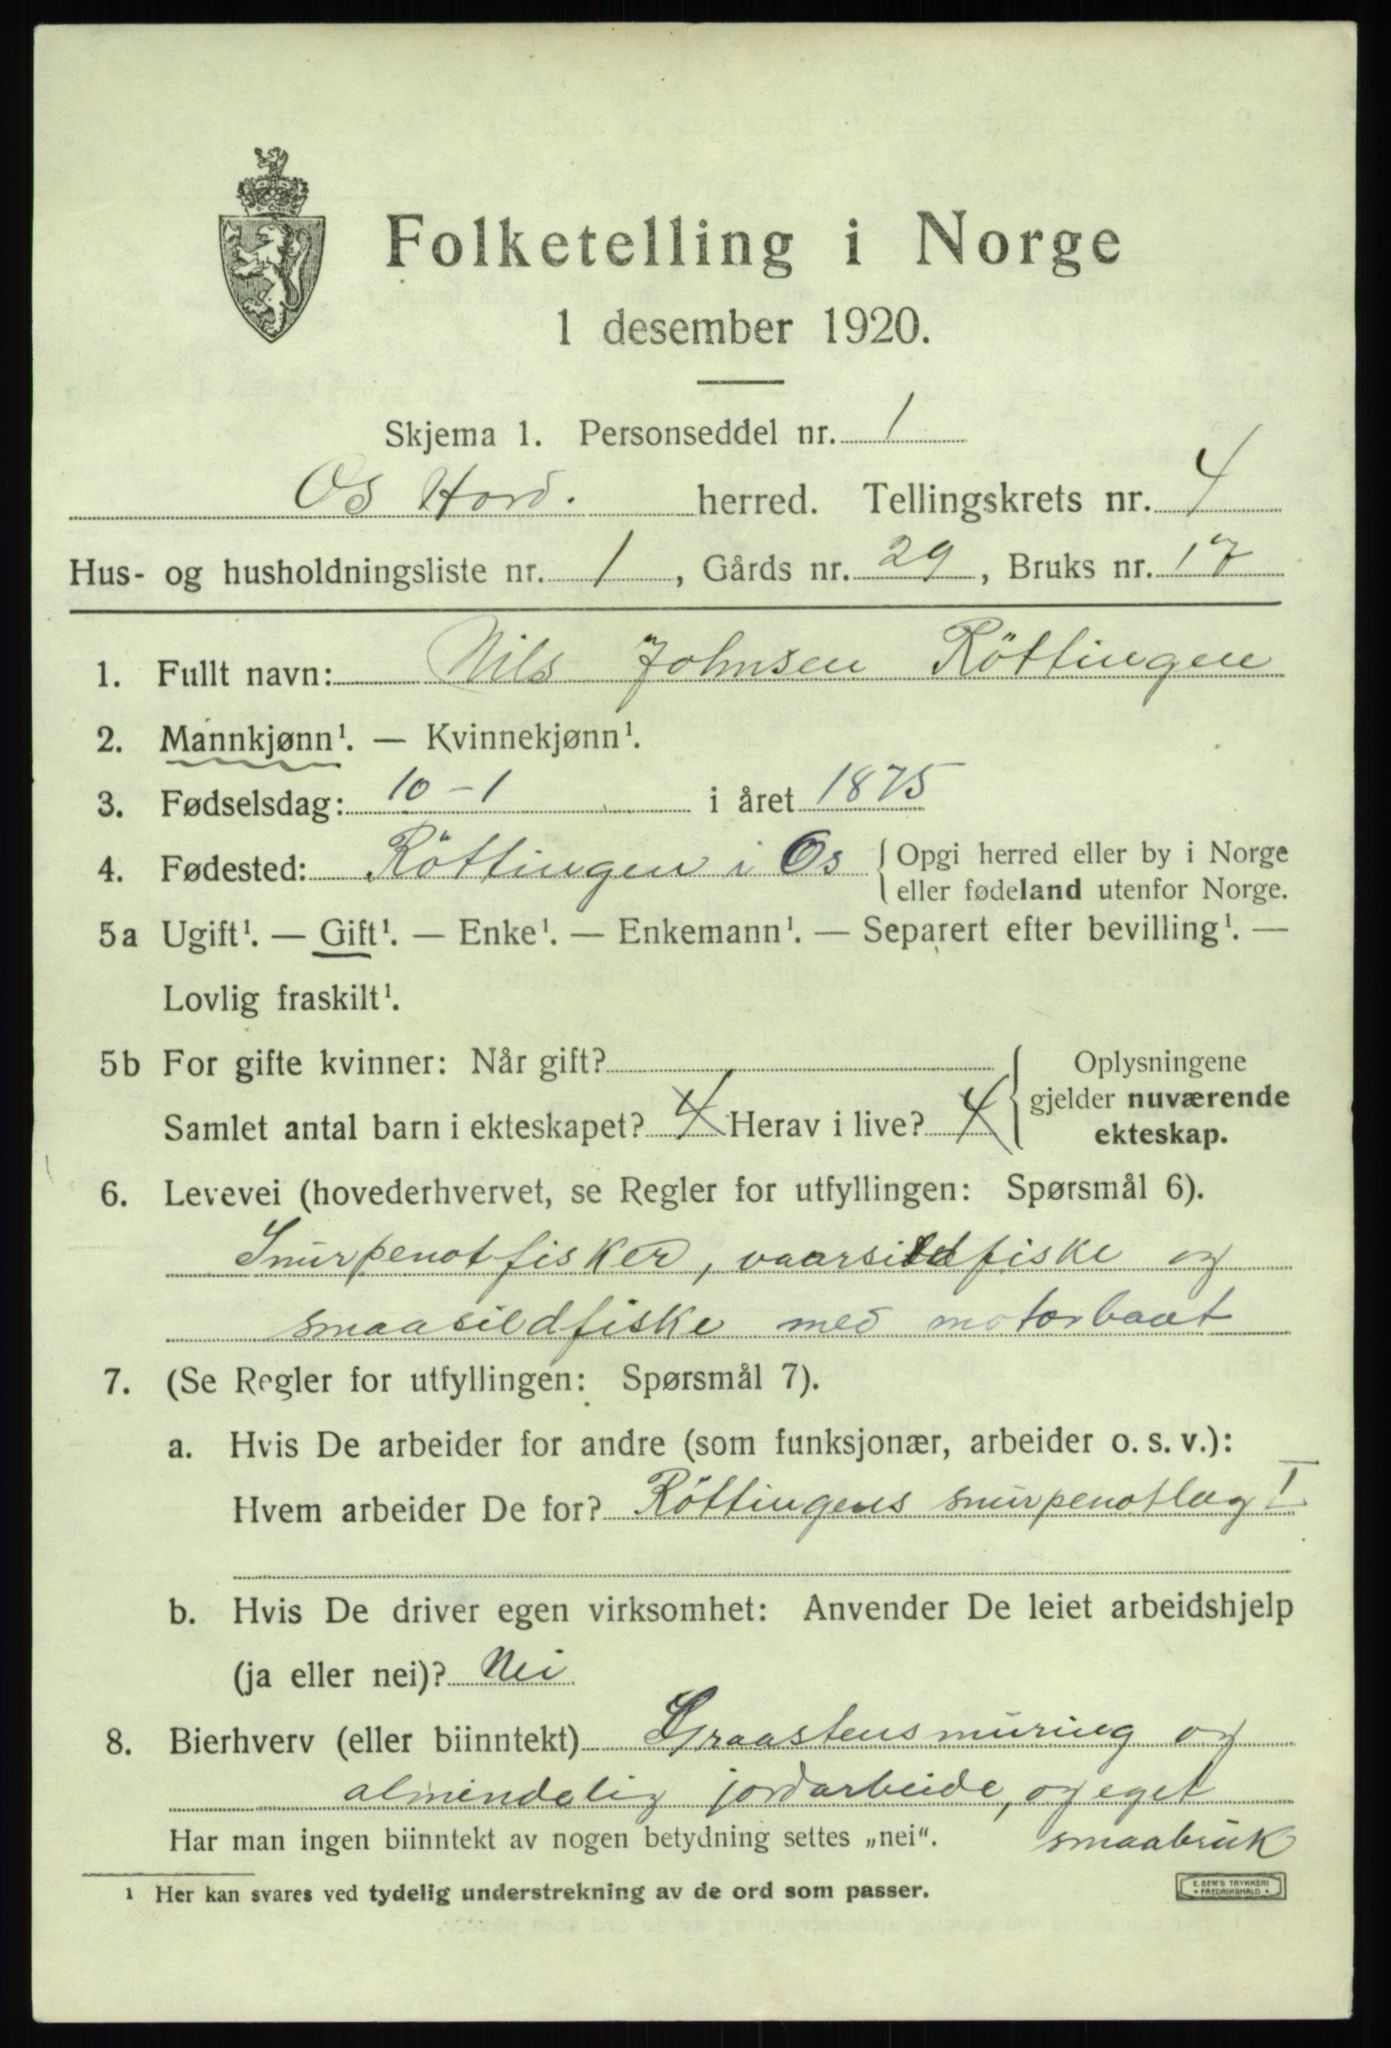 Folketelling i Norge
1 desember 1920.
Skjema 1. Personseddel nr. 1
Os Hord. herred. Tellingskrets nr. 4
Hus- og husholdningsliste nr. 1, Gårds nr. 29, Bruks nr. 17
1. Fullt navn: Nils Johnsen Röttingen
2. Mannkjønn¹. — Kvinnekjønn¹.
3. Fødselsdag: 10-1 i året 1875
4. Fødested: Röttingen i Os { Opgi herred eller by i Norge
eller fødeland utenfor Norge.
5a Ugift¹. — Gift¹. — Enke¹. — Enkemann¹. — Separert efter bevilling¹. —
Lovlig fraskilt¹.
5b For gifte kvinner: Når gift?
Samlet antal barn i ekteskapet? 4 Herav i live? 4
{ Oplysningene
gjelder nuværende
ekteskap.
6. Levevei (hovederhvervet, se Regler for utfyllingen: Spørsmål 6).
Snurpenotfisker, vaarsildfiske og
smaasildfiske med motorbaat
7. (Se Regler for utfyllingen: Spørsmål 7).
a. Hvis De arbeider for andre (som funksjonær, arbeider o. s. v.):
Hvem arbeider De for? Röttingens snurpenotlag I
b. Hvis De driver egen virksomhet: Anvender De leiet arbeidshjelp
(ja eller nei)? Nei
8. Bierhverv (eller biinntekt) Graastensmuring og
almindelig jordarbeide, og eget
Har man ingen biinntekt av nogen betydning settes „nei“. smaabruk
¹ Her kan svares ved tydelig understrekning av de ord som passer.
E. SEM'S TRYKKERI
FREDRIKSHALD